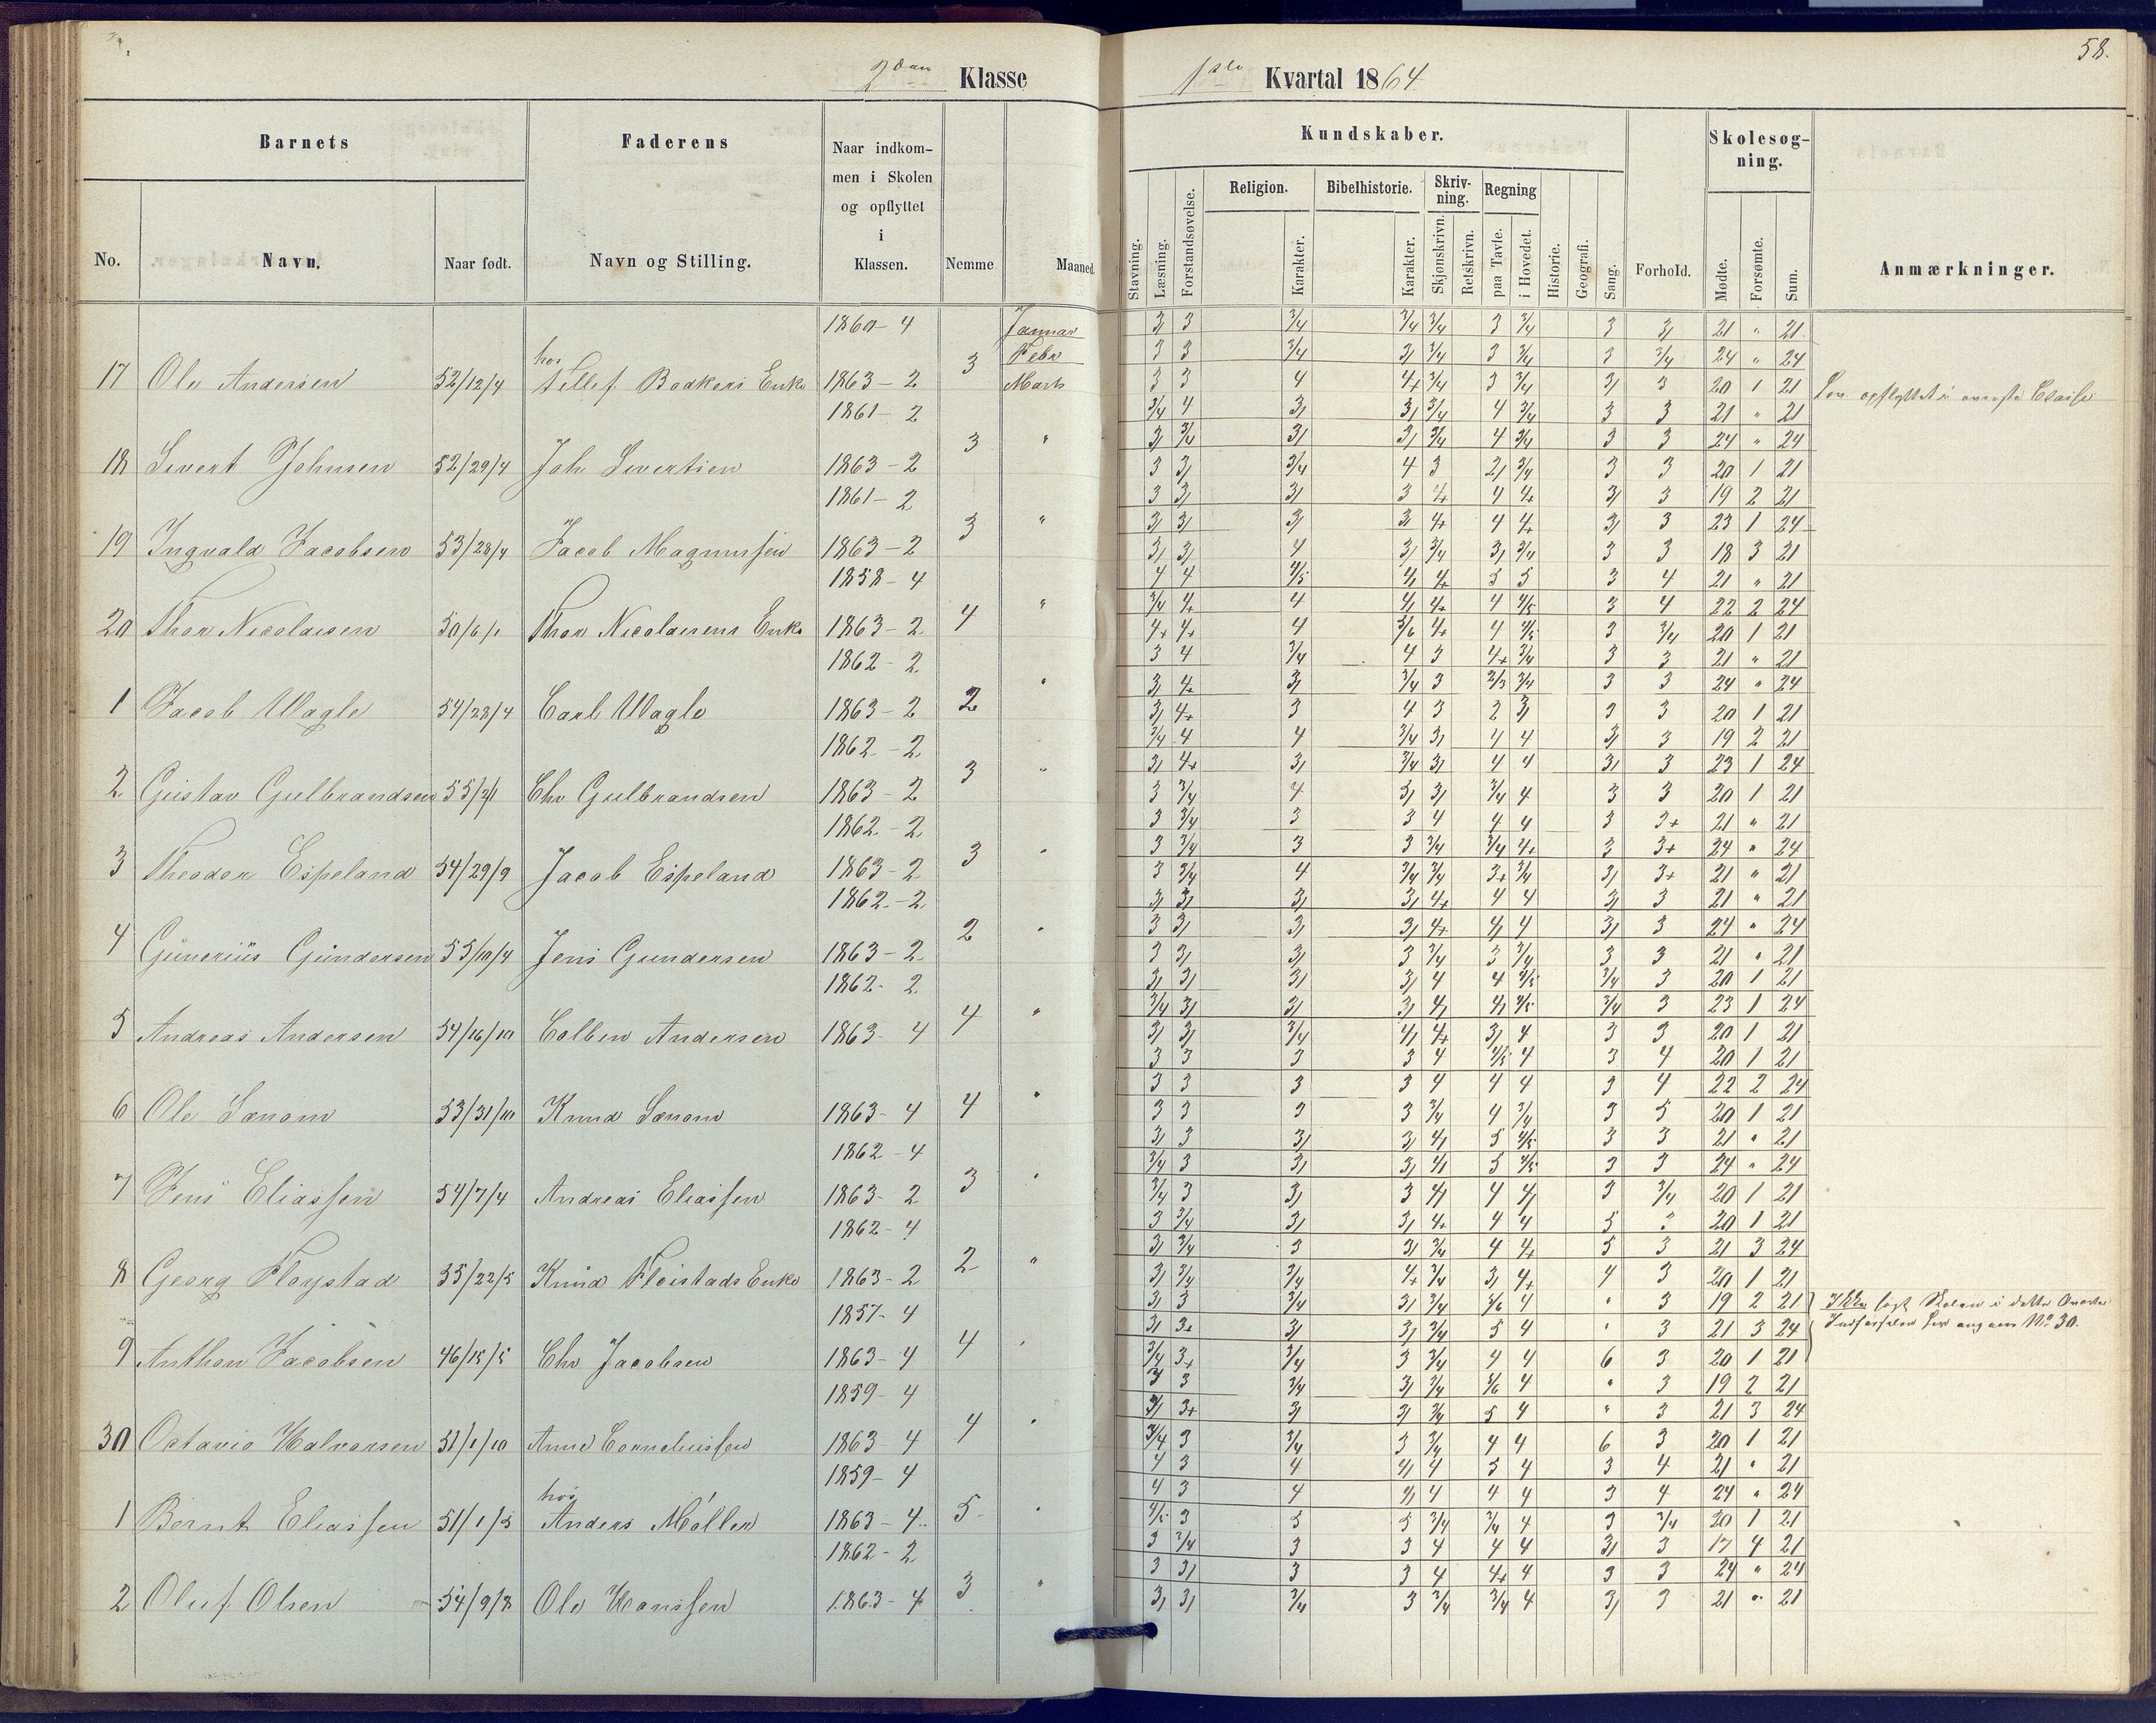 58.
2den Klasse
1ste Kvartal 1864
Barnets
Faderens
Naar indkom-
men i Skolen
og opflyttet
i
Klassen.
Kundskaber.
Skolesøg-
ning.
Religion. Bibelhistorie. Skriv-
ning. Regning
No. Navn. Naar født. Navn og Stilling. Nemme Maaned.
Stavning. Læsning. Forstandsøvelse. Karakter. Karakter. Skjønskrivn. Retskrivn. paa Tavle. i Hovedet. Historie. Geografi. Sang. Forhold. Mødte. Forsømte. Sum. Anmærkninger.
1860-4 Januar 3/ 3 3/4 3/4 3/4 3 3/4 3 3/ 21 " 21
hos 3 Febr 3 3 3/4 3/ 3/4 3 3/4 3 3/4 24 " 24
17 Ole Andersen 52/12/4 Tellef Bodkers Enke 1863-2 Marts 3 3 4 4+ 3/4 3 3/4 3/ 3 20 1 21 opflyttet i øverste Classe
1861-2 3/4 4 3/ 3/ 3/4 4 3/4 3 3 21 " 21
3 " 3/ 3/4 3/ 3/ 3/4 4 3/4 3 3 24 " 24
18 Sivert Johnsen 52/29/4 Joh Sivertsen 1863-2 3 3/ 3/4 4 3 2/ 3/4 3 3 20 1 21
1861-2 3 3/ 3/ 3 4+ 4 4+ 3/ 3 19 2 21
3 " 3/ 3/ 3/ 3/ 4+ 4 4+ 3/ 3 23 1 24
19 Ingvald Jacobsen 53/28/4 Jacob Magnussen 1863-2 3/ 3/ 4 3/ 3/4 3/ 3/4 3 3 18 3 21
1858-4 4 4 4/5 4/ 4+ 5 5 3 4 21 " 21
4 " 3/4 4+ 4 4/ 4+ 4 4/5 3 4 22 2 24
20 Thor Nicolaisen 50/6/1 Thor Nicolaisens Enke 1863-2 4+ 4+ 4 5/6 4+ 4 4/5 3 3/4 20 1 21
1862-2 3 4 3/4 4 3 4+ 3/4 3 3 21 " 21
2 " 3/ 4+ 3/ 3/4 3 2/3 3/4 3 3 24 " 24
1 Jacob Wagle 54/28/4 Carl Wagle 1863-2 3/ 4+ 3 4 3 2 3/ 3 3 20 1 21
1862-2 3/4 4 4 3/4 3/ 4 4 3/ 3 19 2 21
3 " 3/ 4+ 3/ 3/4 3/ 4 4 3/ 3 23 1 24
2 Gustav Gulbrandsen 55/2/1 Chr Gulbrandsen 1863-2 3 3/4 4 3/ 3/ 3/4 4 3 3 20 1 21
1862-2 3 3/4 3 3 4 4 4 3 3+ 21 " 21
3 " 3 3/4 3 3 3/4 3/4 4+ 3 3+ 24 " 24
3 Theodor Espeland 54/29/9 Jacob Espeland 1863-2 3 3/4 4 3/4 3/4 3+ 3/4 3/ 3+ 21 " 21
1862-2 3/ 3/ 3/ 3/ 4+ 4 4 3/ 3 21 " 21
2 " 3 3/ 3/ 3/ 4+ 4/ 4 3/ 3 24 " 24
4 Günerius Gündersen 55/10/4 Jens Gundersen 1863-2 3 3/ 3/ 3 3/4 3 3/4 3 3 21 " 21
1862-2 3/ 3/ 3/ 3/ 4 4 4/5 3/4 3 20 1 21
4 " 3/4 3/ 3/ 3/ 4/ 4/ 4/5 3/4 3 23 1 24
5 Andreas Andersen 54/16/10 Colben Andersen 1863-4 3/ 3/ 3/4 4/ 4+ 3/ 4 3 3 20 1 21
3 3 3 3 4 4/5 4 3 4 20 1 21
4 " 3 3 3 3 4 4 4 3 4 22 2 24
6 Ole Sanom 53/31/10 Knud Sanom 1863-4 3 3 3 3 3/4 4 3/4 3 5 20 1 21
1862-4 3/ 3 3/ 3/ 4/ 5 4/5 3 3 21 " 21
3 " 3/4 3 3/ 3/ 4/ 5 4/5 3 3 24 " 24
7 Jens Eliassen 54/7/4 Andreas Eliassen 1863-2 3/4 3 3/ 3 4/ 4 4/ 3 3/4 20 1 21
1862-4 3 3/4 3/ 3/ 4+ 4 4 5 3 20 1 21
2 " 3/ 3/4 3 3/ 3/4 4 4+ 5 3 21 3 24
8 Georg Fløystad 55/22/5 Knud Fleistads Enke 1863-2 3/ 3/4 3/4 4+ 3/4 3/ 4+ 4 3 20 1 21
1857-4 3/ 3 3/4 3/ 3/4 5/6 4 " 3 19 2 21 Ikke søgt Skolen i dette Qvartal
4 " 3/ 3+ 3/ 3/ 3/4 5 4 " 3 21 3 24 No 30.
9 Anthon Jacobsen 46/15/5 Chr Jacobsen 1863-4 3/4 3+ 3/4 3 3/4 4 4 6 3 20 1 21
1859-4 3 3 3/4 3/ 3/4 5/6 4 " 3 19 2 21
4 " 3/ 3+ 3/ 3/ 3/4 5 4 " 3 21 3 24
30 Octavio Halvorsen 51/1/10 Anne Corneliussen 1863-4 3/4 3 3/4 3 3/4 4 4 6 3 20 1 21
1859-4 4 3 4 4/ 4 5 4 3 4 21 " 21
hos 5 " 4 3 4 4/ 4 4 4 3 4 24 " 24
1 Bernt Eliassen 51/1/5 Anders Möller 1863-4 4/5 3 5 5 3/4 3/4 4 3 3/4 20 1 21
1862-2 3 3/4 3 3 4 4 4 3/ 3 17 4 21
3 " 3 3/ 3 3 4 4+ 4 3 3 24 " 24
2 Oluf Olsen 54/9/8 Ole Hanssen 1863-4 3/ 3/ 3/4 3 3/4 3/4 4 3/ 3 21 " 21